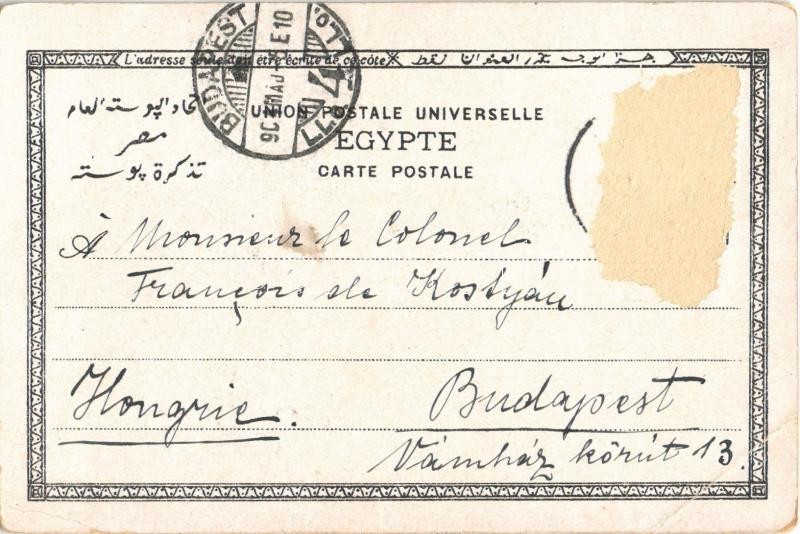 L'adresse seule doit être écrite de ce côté
جهة لوجه تحرير العنوان فقط
اتحاد البوسته العام
مصر
تذكرة بوسته
UNION POSTALE UNIVERSELLE
EGYPTE
CARTE POSTALE
BUDAPEST
À Monsieur le Colonel
François de Kostyán
Hongrie.
Budapest
Vámház körút 13.